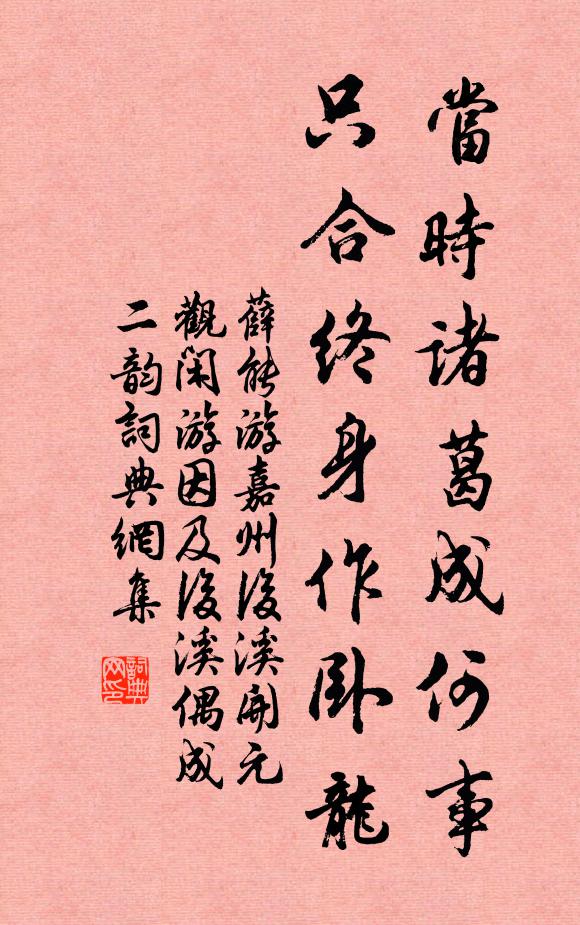 當時諸葛成何事
只合終身作臥龍
薛能游嘉州後溪開元
觀閑游因及後溪偶成
二韵詞典網集
詞典网印